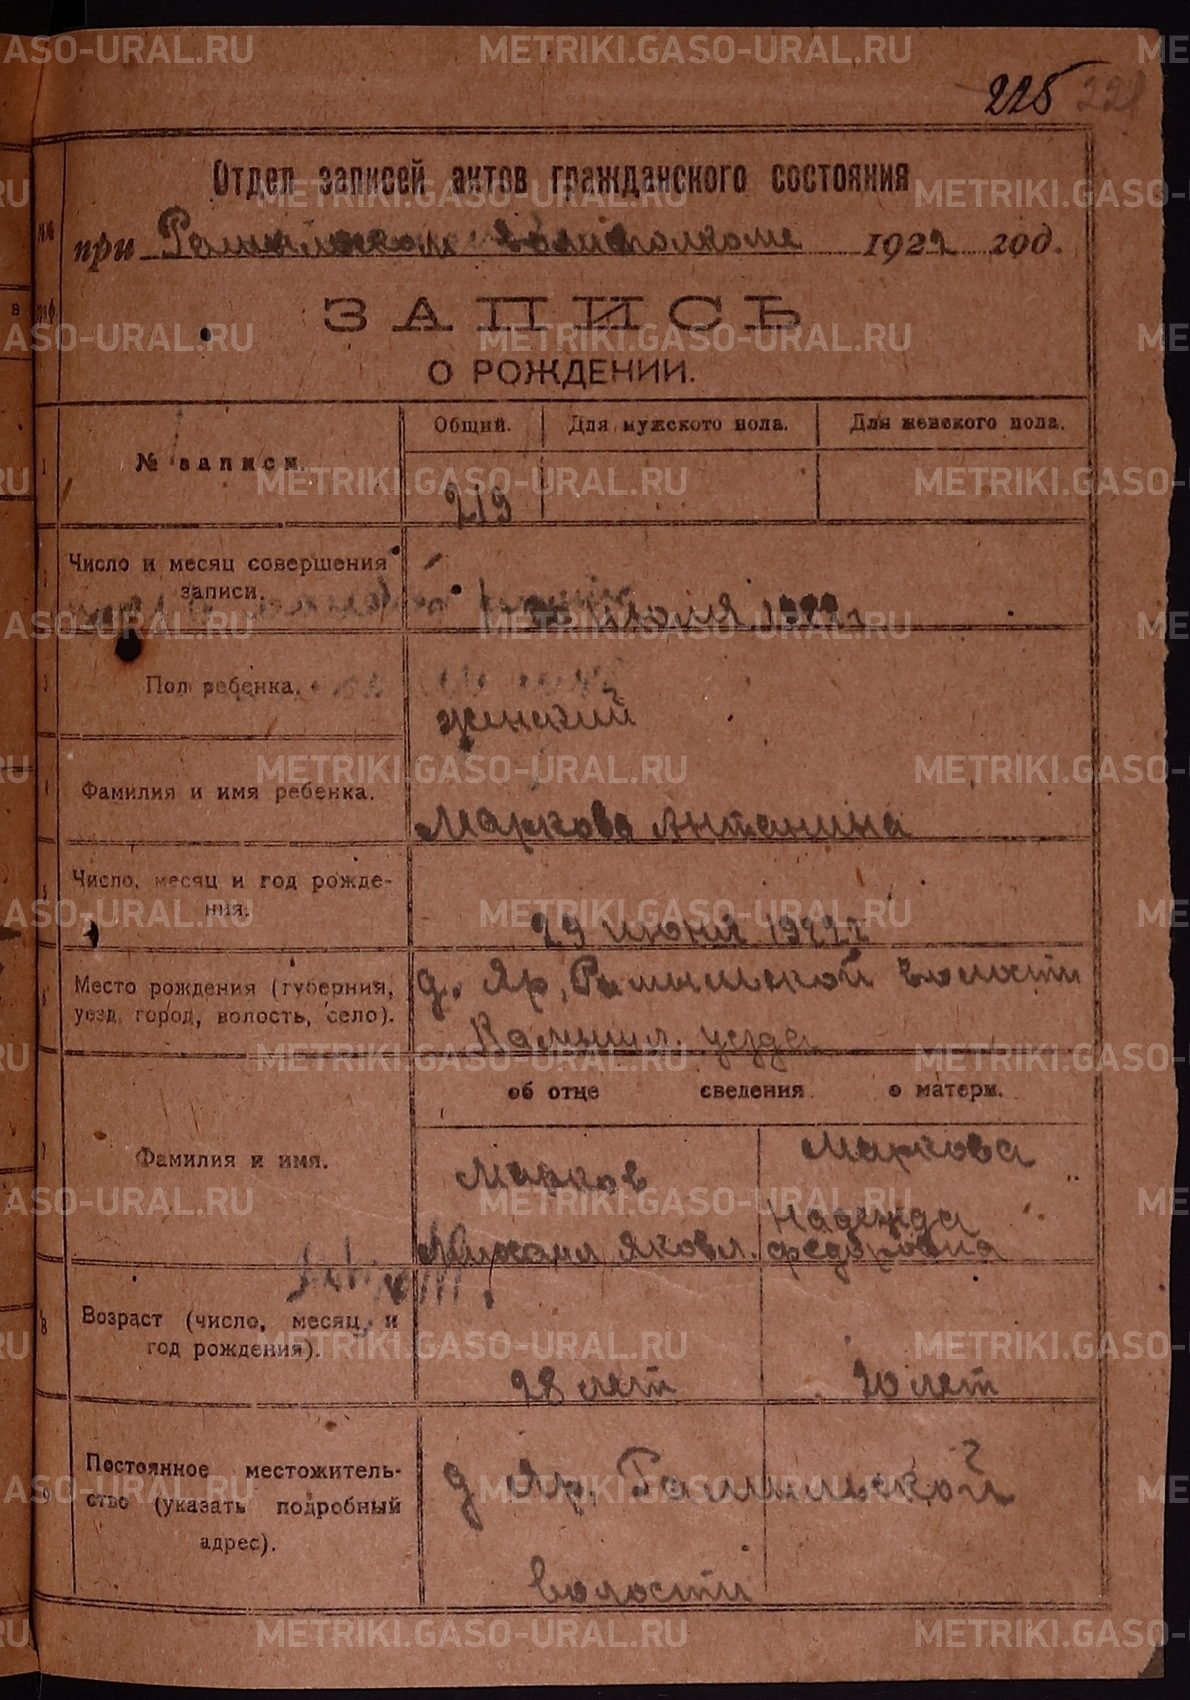 225
Отдел записей актов гражданского состояния
при Рамыльском волисполкоме 1922 год.
ЗАПИСЬ
О РОЖДЕНИИ.
№ записи.
Общий. Для мужского пола. Для женского пола.
219
Число и месяц совершения
записи.
июля 1922 г
Пол ребенка.
женский
Фамилия и имя ребенка.
Маркова Антанина
Число, месяц и год рожде-
ния.
29 июня 1922 г
Место рождения (губерния,
уезд, город, волость, село).
д. Яр, Рамыльской волости
Камышл. уезда
об отце сведения о матери.
Фамилия и имя.
Марков
Михаил Яковл.
Маркова
Надежда
Федоровна
Возраст (число, месяц и
год рождения).
28 лет
20 лет
Постоянное местожитель-
ство (указать подробный
адрес).
д Яр, Рамыльской
волости
METRIKI.GASO-URAL.RU